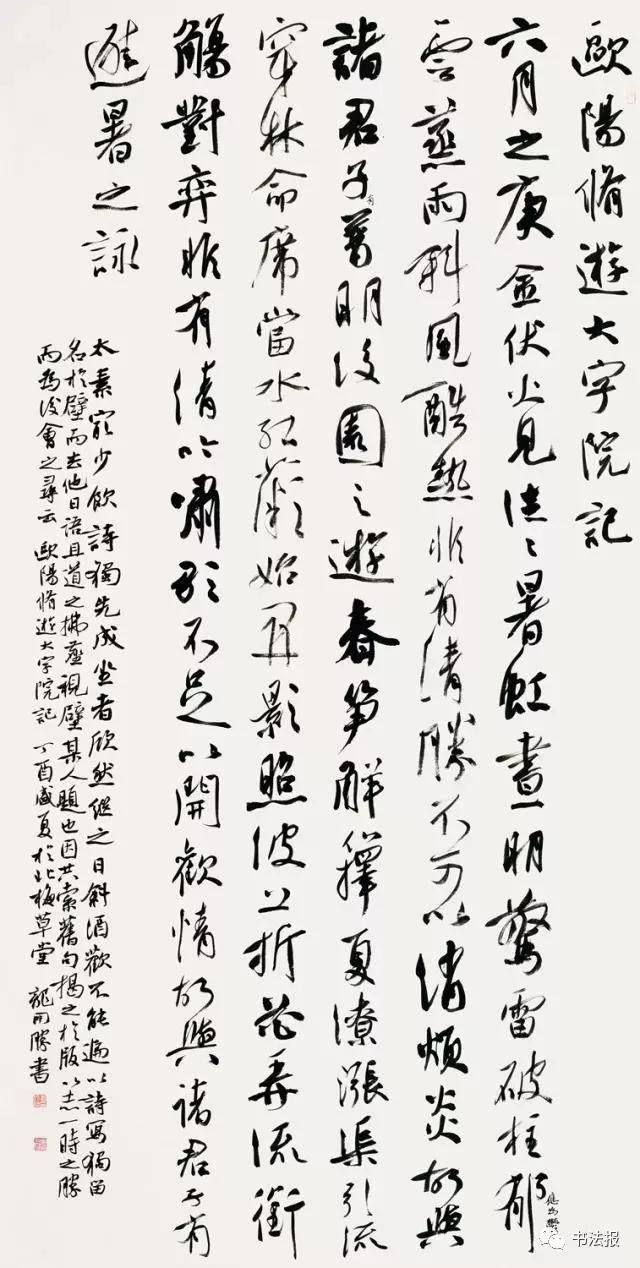 歐陽脩遊大字院記
六月之庚金伏火見往〻暑虹晝明驚雷破柱郁
雲蒸雨斜風酷熱非有清勝不可以消煩炎故與
諸君子有普明後園之遊春筍解籜夏潦漲渠引流
穿林命席當水紅薇始開影照波上折花弄流銜
觴對弈非有清吟嘯歌不足以開歡情故與諸君子有
避暑之詠
太素最少飲詩獨先成坐者欣然繼之日斜酒歡不能遍以詩寫獨留
名於壁而去他日語且道之拂塵視壁某人題也因共索舊句揭之於版以志一時之勝
而為後會之尋云 歐陽脩遊大字院記 丁酉盛夏於北梅草堂 龍開勝書
书法报